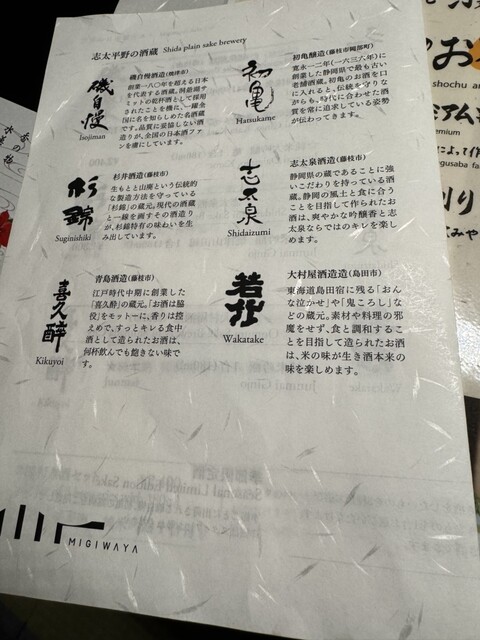 志太平野の酒蔵 Shida plain sake brewery
磯自慢
Isojiman
磯自慢酒造（焼津市）
創業一八〇年を超える日本
を代表する酒蔵。洞爺湖サ
ミットの乾杯酒として採用
された事を機に、一躍全
国に名を知らしめた名酒蔵
です。品質に妥協しない酒
造りが、全国の日本酒ファ
ンを虜にしています。
初亀
Hatsukame
初亀醸造（藤枝市岡部町）
寛永一二年（一六三六年）に
創業した静岡県で最も古い
老舗酒蔵。初亀のお酒を口
に入れると、伝統を守りな
がらも、時代に合わせた酒
質を常に追求している姿勢
が伝わってきます。
杉錦
Suginishiki
杉井酒造（藤枝市）
生もとと山廃という伝統的
な製造方法を守っている
「杉錦」の蔵元。現代の酒蔵
と一線を画すその酒造り
が、杉錦特有の味わいを生
み出しています。
志太泉
Shidaizumi
志太泉酒造（藤枝市）
静岡県の蔵であることに強
いこだわりを持っている酒
蔵。静岡の風土と食に合う
ことを目指して作られたお
酒は、爽やかな吟醸香と志
太泉ならではのキレを楽し
めます。
喜久醉
Kikuyoi
青島酒造（藤枝市）
江戸時代中期に創業した
「喜久醉」の蔵元。「お酒は脇
役」をモットーに、香りは控
えめで、すっとキレる食中
酒として造られたお酒は、
何杯飲んでも飽きない味で
す。
若竹
Wakatake
大村屋酒造造（島田市）
東海道島田宿に残る「おん
な泣かせ」や「鬼ころし」な
どの蔵元。素材や料理の邪
魔をせず、食と調和するこ
とを目指して造られたお酒
は、米の味が生き酒本来の
味を楽しめます。
MIGIWAYA
のお
shochu ar
ミアム
emium
によって作
gusaba fa